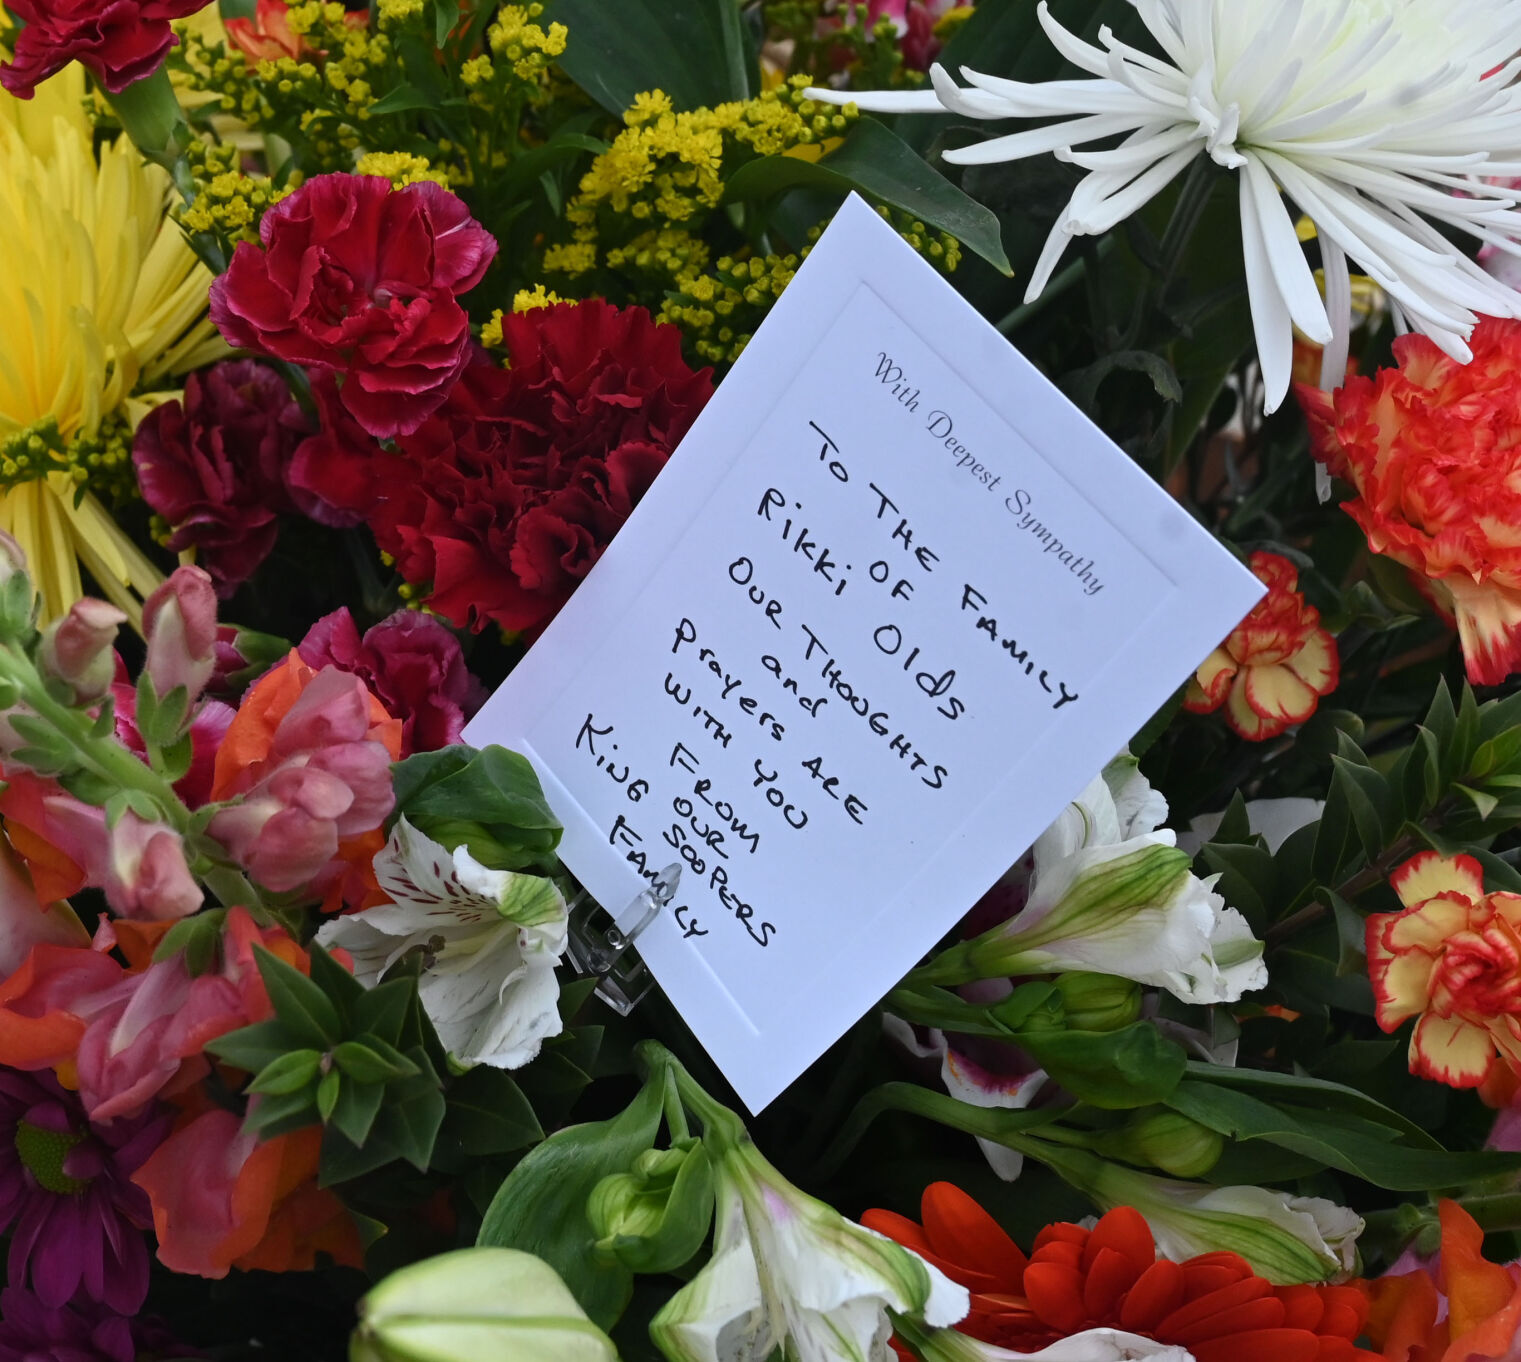 With Deepest Sympathy
To THE FAMILY
OF
Rikki Olds
OUR THOUGHTS
and
Prayers ARE
WITH YOU
FROM
OUR
KING SOOPERS
FAMILY